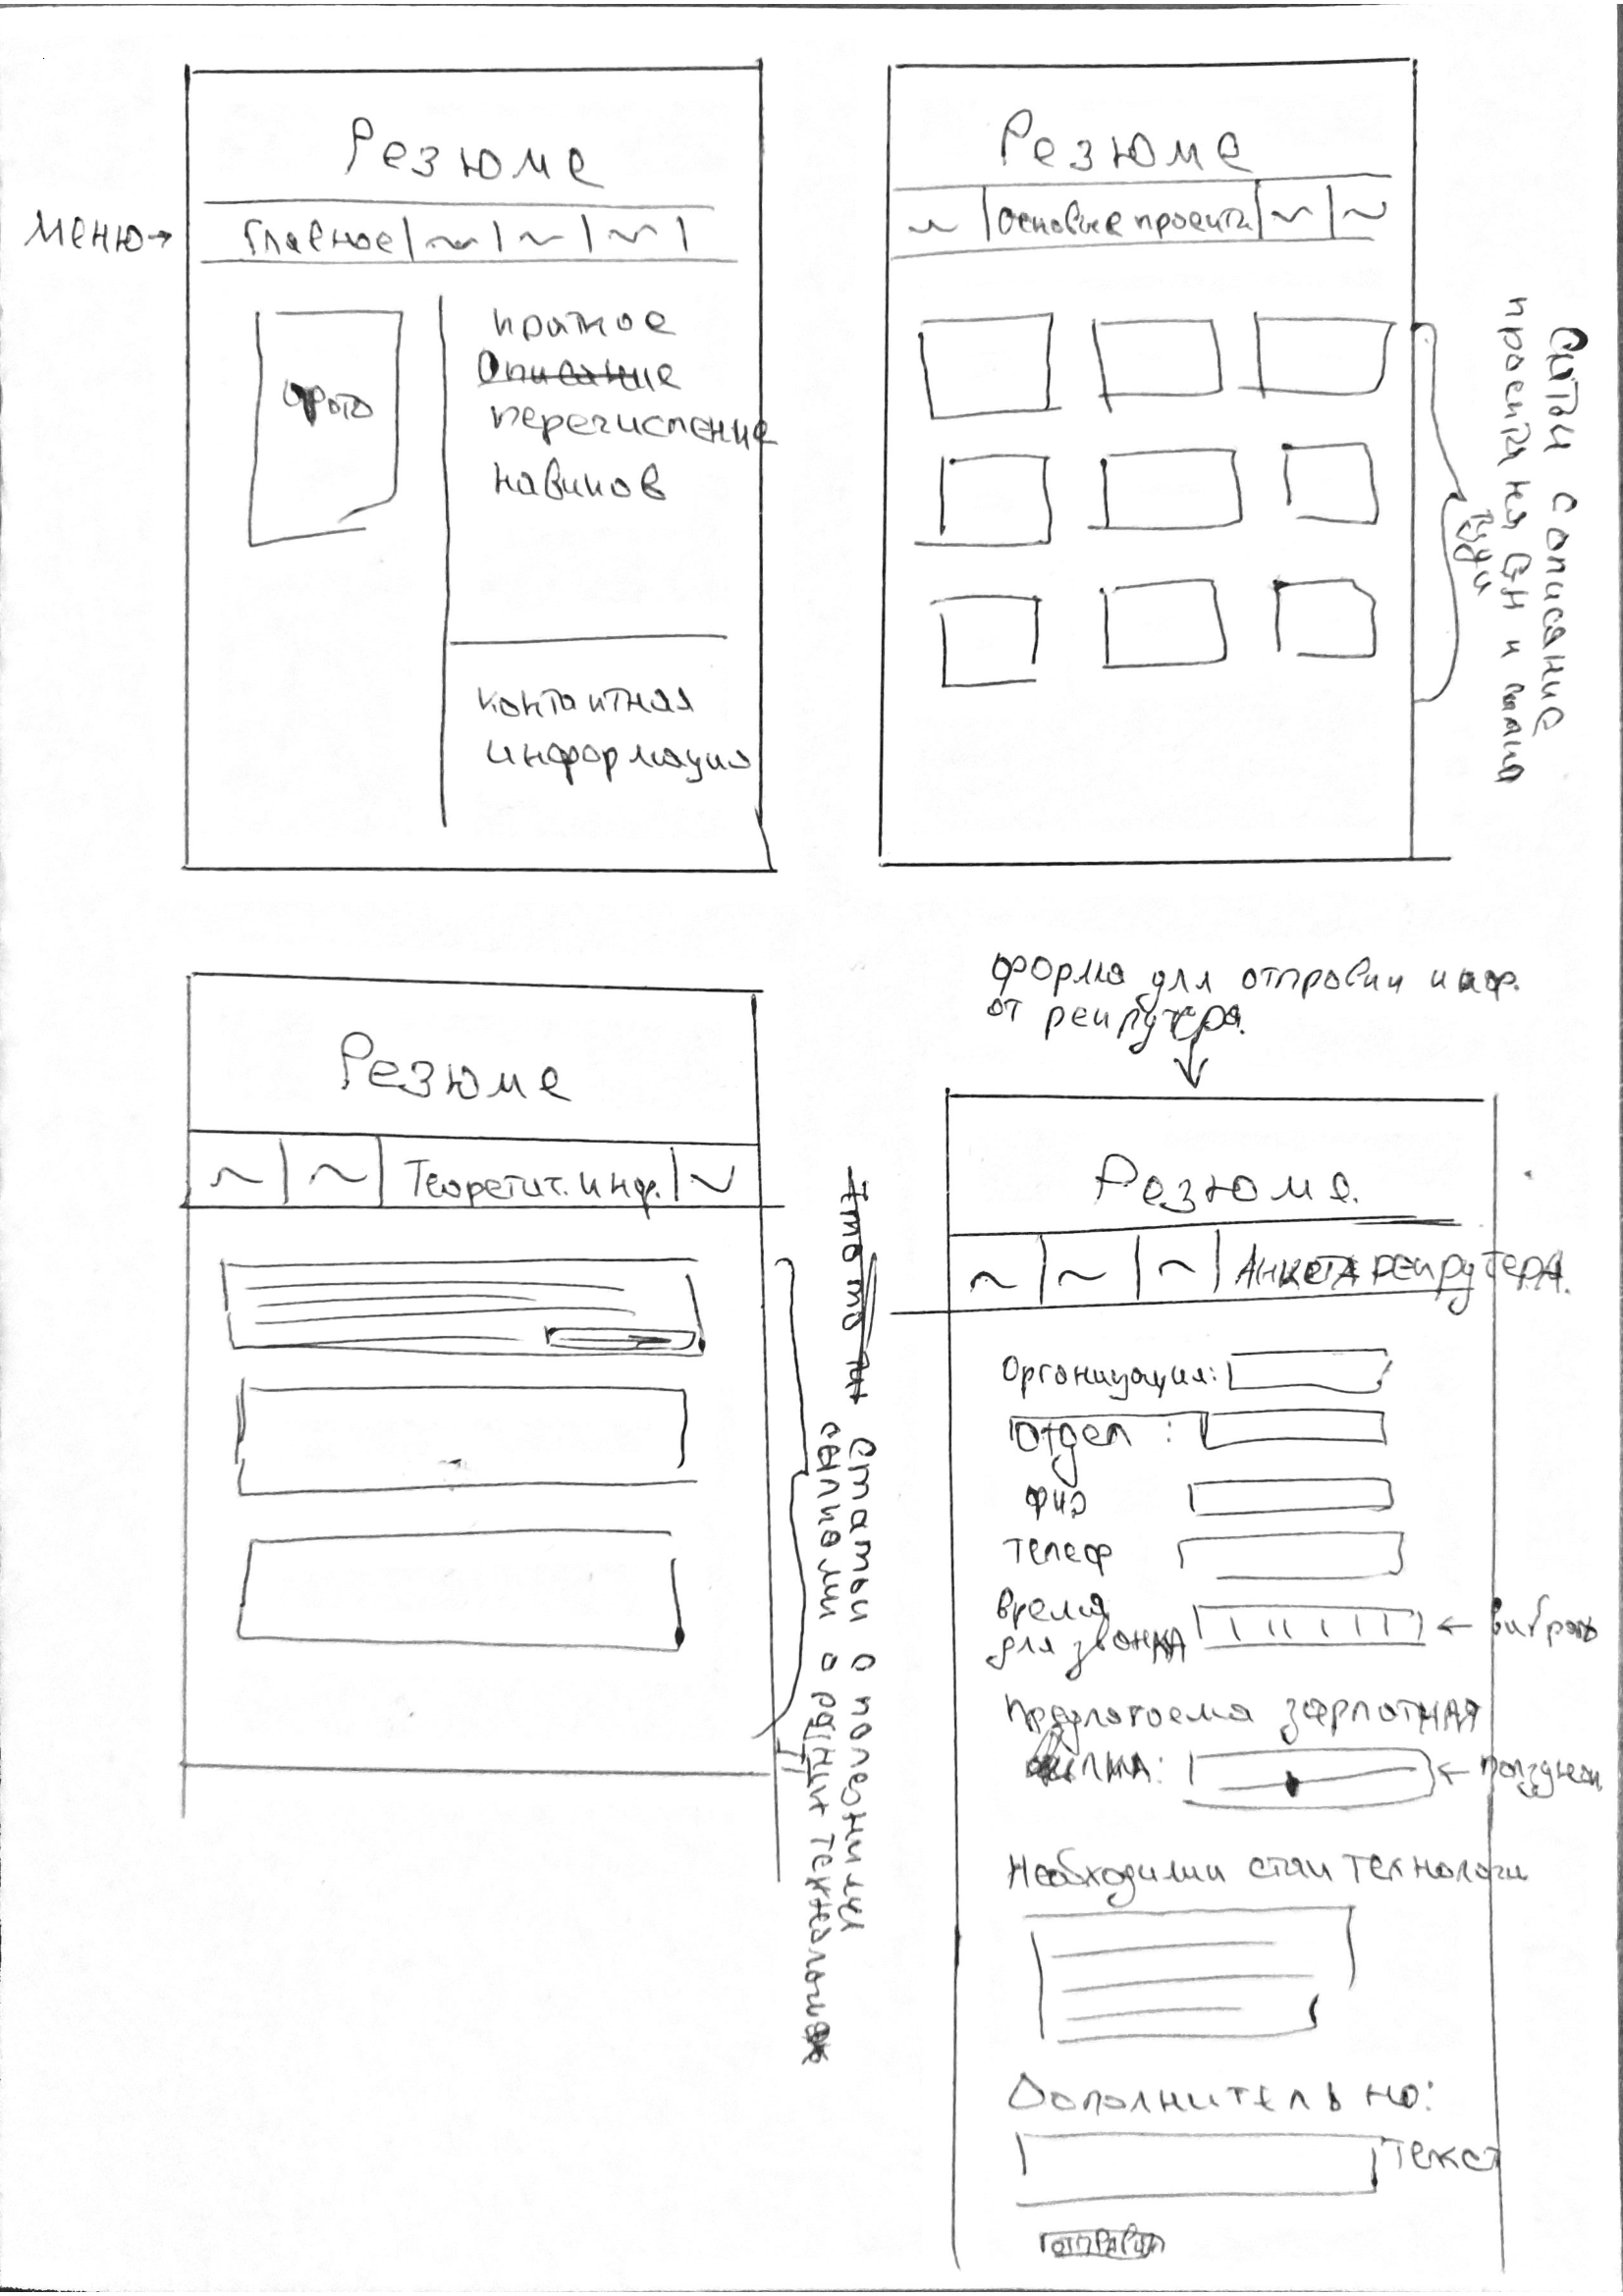 Резюме
меню→
Главное
фото
краткое
Описание
перечисление
навыков
контактная
информация
Резюме
Основные проекты
с описание
проекта на и
Резюме
Теоретич. инф.
Статьи о полезными
сылками о разных технологиях
форма для отправки инф.
от рекрутера.
Резюме.
Анкета рекрутера.
Организация:
Отдел :
ФИО
Телеф
Время
для звонка
← выбрать
Предлогаемя зарплотная
вилка:
← ползунок
Необходимый стак технологи
Дополнительно:
Текст
отправит